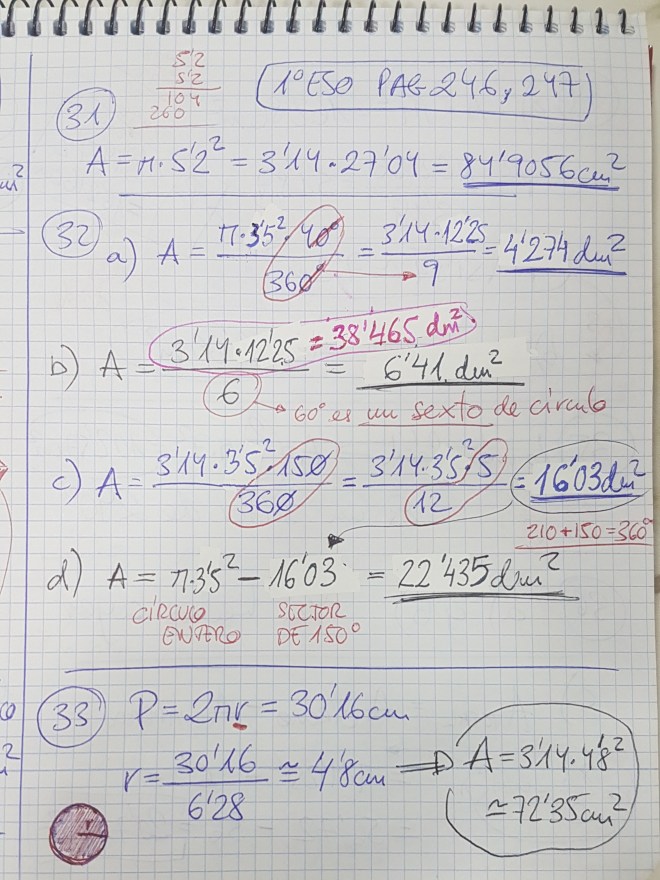 5'2
5'2
104
260
1º ESO PAG 246, 247
31
A = π·5'2² = 3'14·27'04 = 84'9056 cm²
32
a) A = π·3'5²·40º / 360º = 3'14·12'25 / 9 = 4'274 dm²
b) A = 3'14·12'25 / 6 = 6'41 dm²
= 38'465 dm²
60º es un sexto de círculo
c) A = 3'14·3'5²·150 / 360 = 3'14·3'5²·5 / 12 = 16'03 dm²
210+150=360º
d) A = π·3'5² − 16'03 = 22'435 dm²
CÍRCULO ENTERO
SECTOR DE 150º
33
P = 2πr = 30'16 cm
r = 30'16 / 6'28 ≅ 4'8 cm ⟹ A = 3'14·4'8²
≃ 72'35 cm²
r